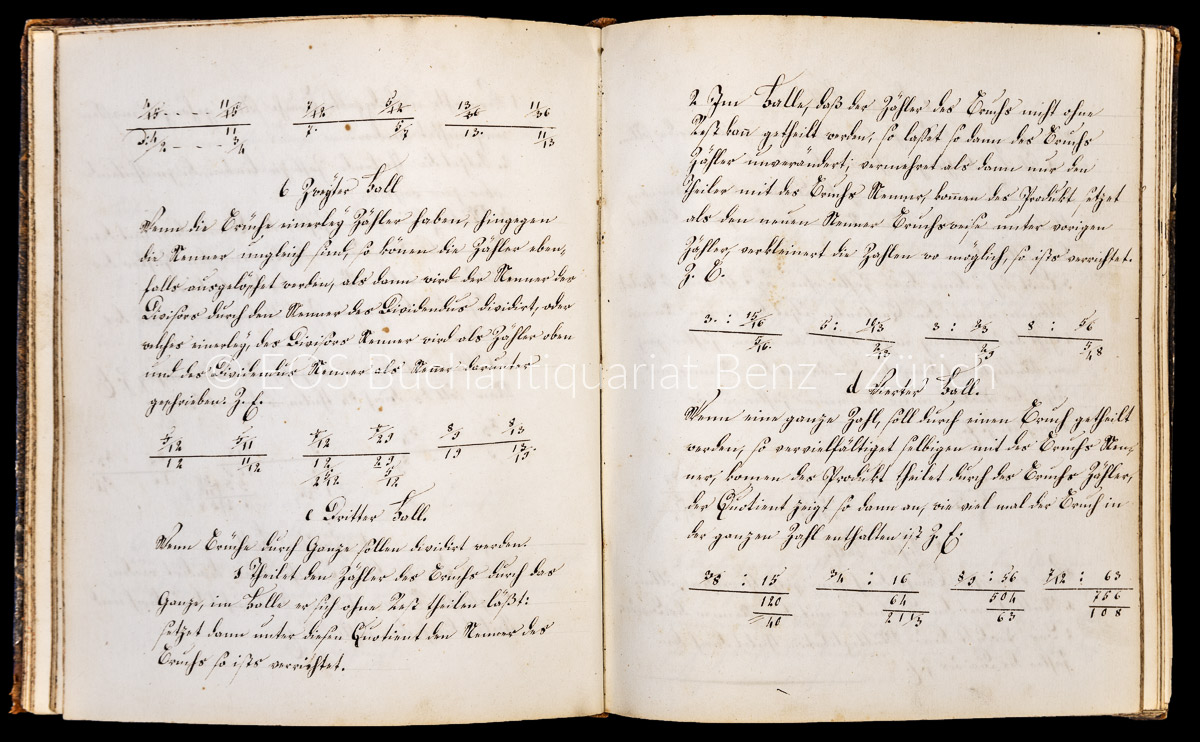 b Zweyter Fall
Wenn die Brüche einerley Zähler haben, hingegen
die Nenner ungleich sind, so können die Zähler eben-
falls ausgelöschet werden, als dann wird der Nenner des
Divisors durch den Nenner des Dividendus dividirt, oder
welches einerley, des Divisors Nenner wird als Zähler oben
und des Dividendus Nenner als Nenner darunter
geschrieben. Z. E.
c Dritter Fall.
Wenn Brüche durch Ganze sollen dividirt werden.
1 Theilet den Zähler des Bruchs durch das
Ganze, im Falle er sich ohne Rest theilen läßt:
setzet dann unter diesen Quotient den Nenner des
Bruchs so ists verrichtet.
2. Im Falle, daß der Zähler des Bruchs nicht ohne
Rest kan getheilt werden, so laßet so dann des Bruchs
Zähler unverändert, vermehret als dann nur den
Theiler mit des Bruchs Nenner, komen des Produkt, setzet
als den neuen Nenner Bruchsweise unter vorigen
Zähler, verkleinert die Zahlen wo möglich, so ists verrichtet.
Z. E.
3 : 15/16 5 : 10/13 3 : 2/3 8 : 5/6
5/16 2/13 2/9 5/48
d Vierter Fall.
Wenn eine ganze Zahl, soll durch einen Bruch getheilt
werden, so vervielfältiget selbigen mit des Bruchs Nen-
ner, komen des Produkt theilet durch des Bruchs Zähler,
der Quotient zeigt so dann an, wie viel mal der Bruch in
der ganzen Zahl enthalten ist Z. E.
3/8 : 15 3/4 : 16 8/9 : 56 7/12 : 63
120 64 504 756
40 21 1/3 63 108
© EOS Buchantiquariat Benz - Zürich